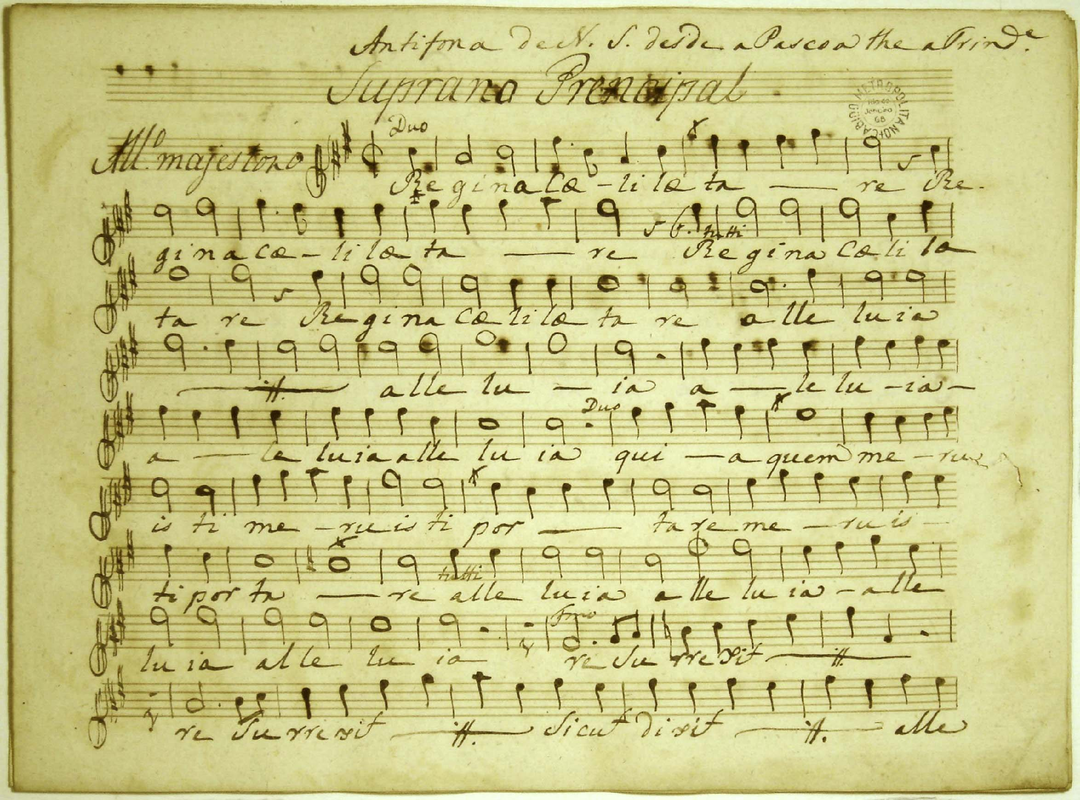 Antifona de N. S. desde a Pascoa the a Trind.e
Suprano Prencipal
CABIDO METROPOLITANO
Rio de Janeiro
All.o majestoso
Duo
Regina Cæ - li læ ta re Re.
gina cæ - li læ ta re Regina Cæli læ
tutti
ta re Regina Cæli læ ta re alle luia
alle lu - ia a le lu - ia -
Duo
a le luia alle lu ia qui - a quem me - ru
is ti me - ru is ti por ta re me - ru is
ti por ta re alle luia alle lu ia - alle
tutti
lu ia alle lu ia re Su rre xit
re Su rre xit Sicut di xit alle